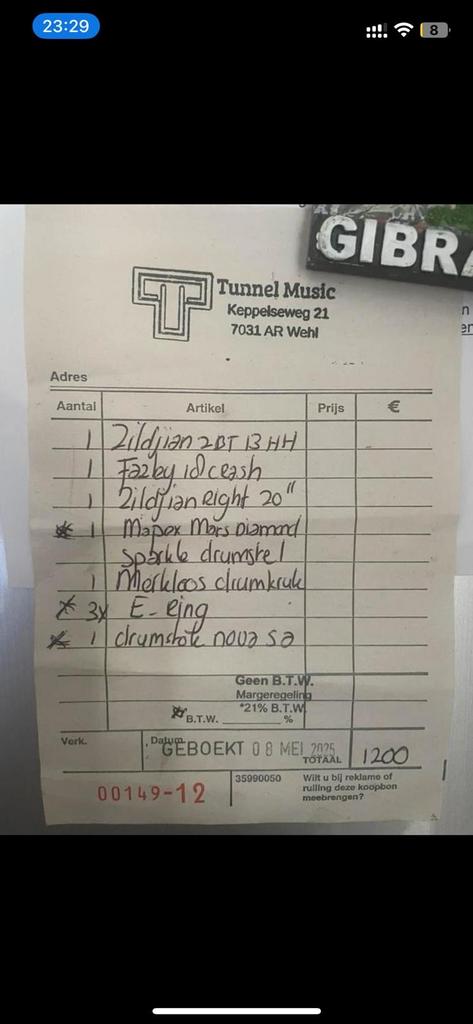 23:29
8
GIBRA
Tunnel Music
Keppelseweg 21
7031 AR Wehl
Adres
Aantal Artikel Prijs €
1 Zildjian ZBT 13 HH
1 Fazby 18 crash
1 Zildjian eight 20"
* 1 Mapex Mars Diamond
sparkle drumstel
1 Merkloos drumkruk
* 3x E-ring
* 1 drumstok nova 5a
Geen B.T.W.
Margeregeling
*21% B.T.W.
* B.T.W. %
Verk. Datum
GEBOEKT 08 MEI 2025
TOTAAL 1200
00149-12
35990050
Wilt u bij reklame of
ruiling deze koopbon
meebrengen?